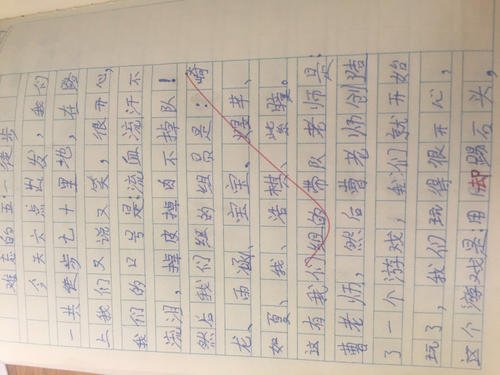 难忘的五一徒步
今天六点出发，我们
一共徒步七十里地，在路
上我们又说又笑，很开心，
我们的口号是：流血流汗不
流泪，掉皮掉肉不掉队！
然后我们组的组员是：崎
龙、雨涵、宝宝、煜丰、
如夏、我、浩、紫
这有我们组的带队老师是：
曹老师，然后曹老师创
了一个游戏，我们就开始
玩了，我们玩得很开心，
这个游戏是：用脚踢石头，